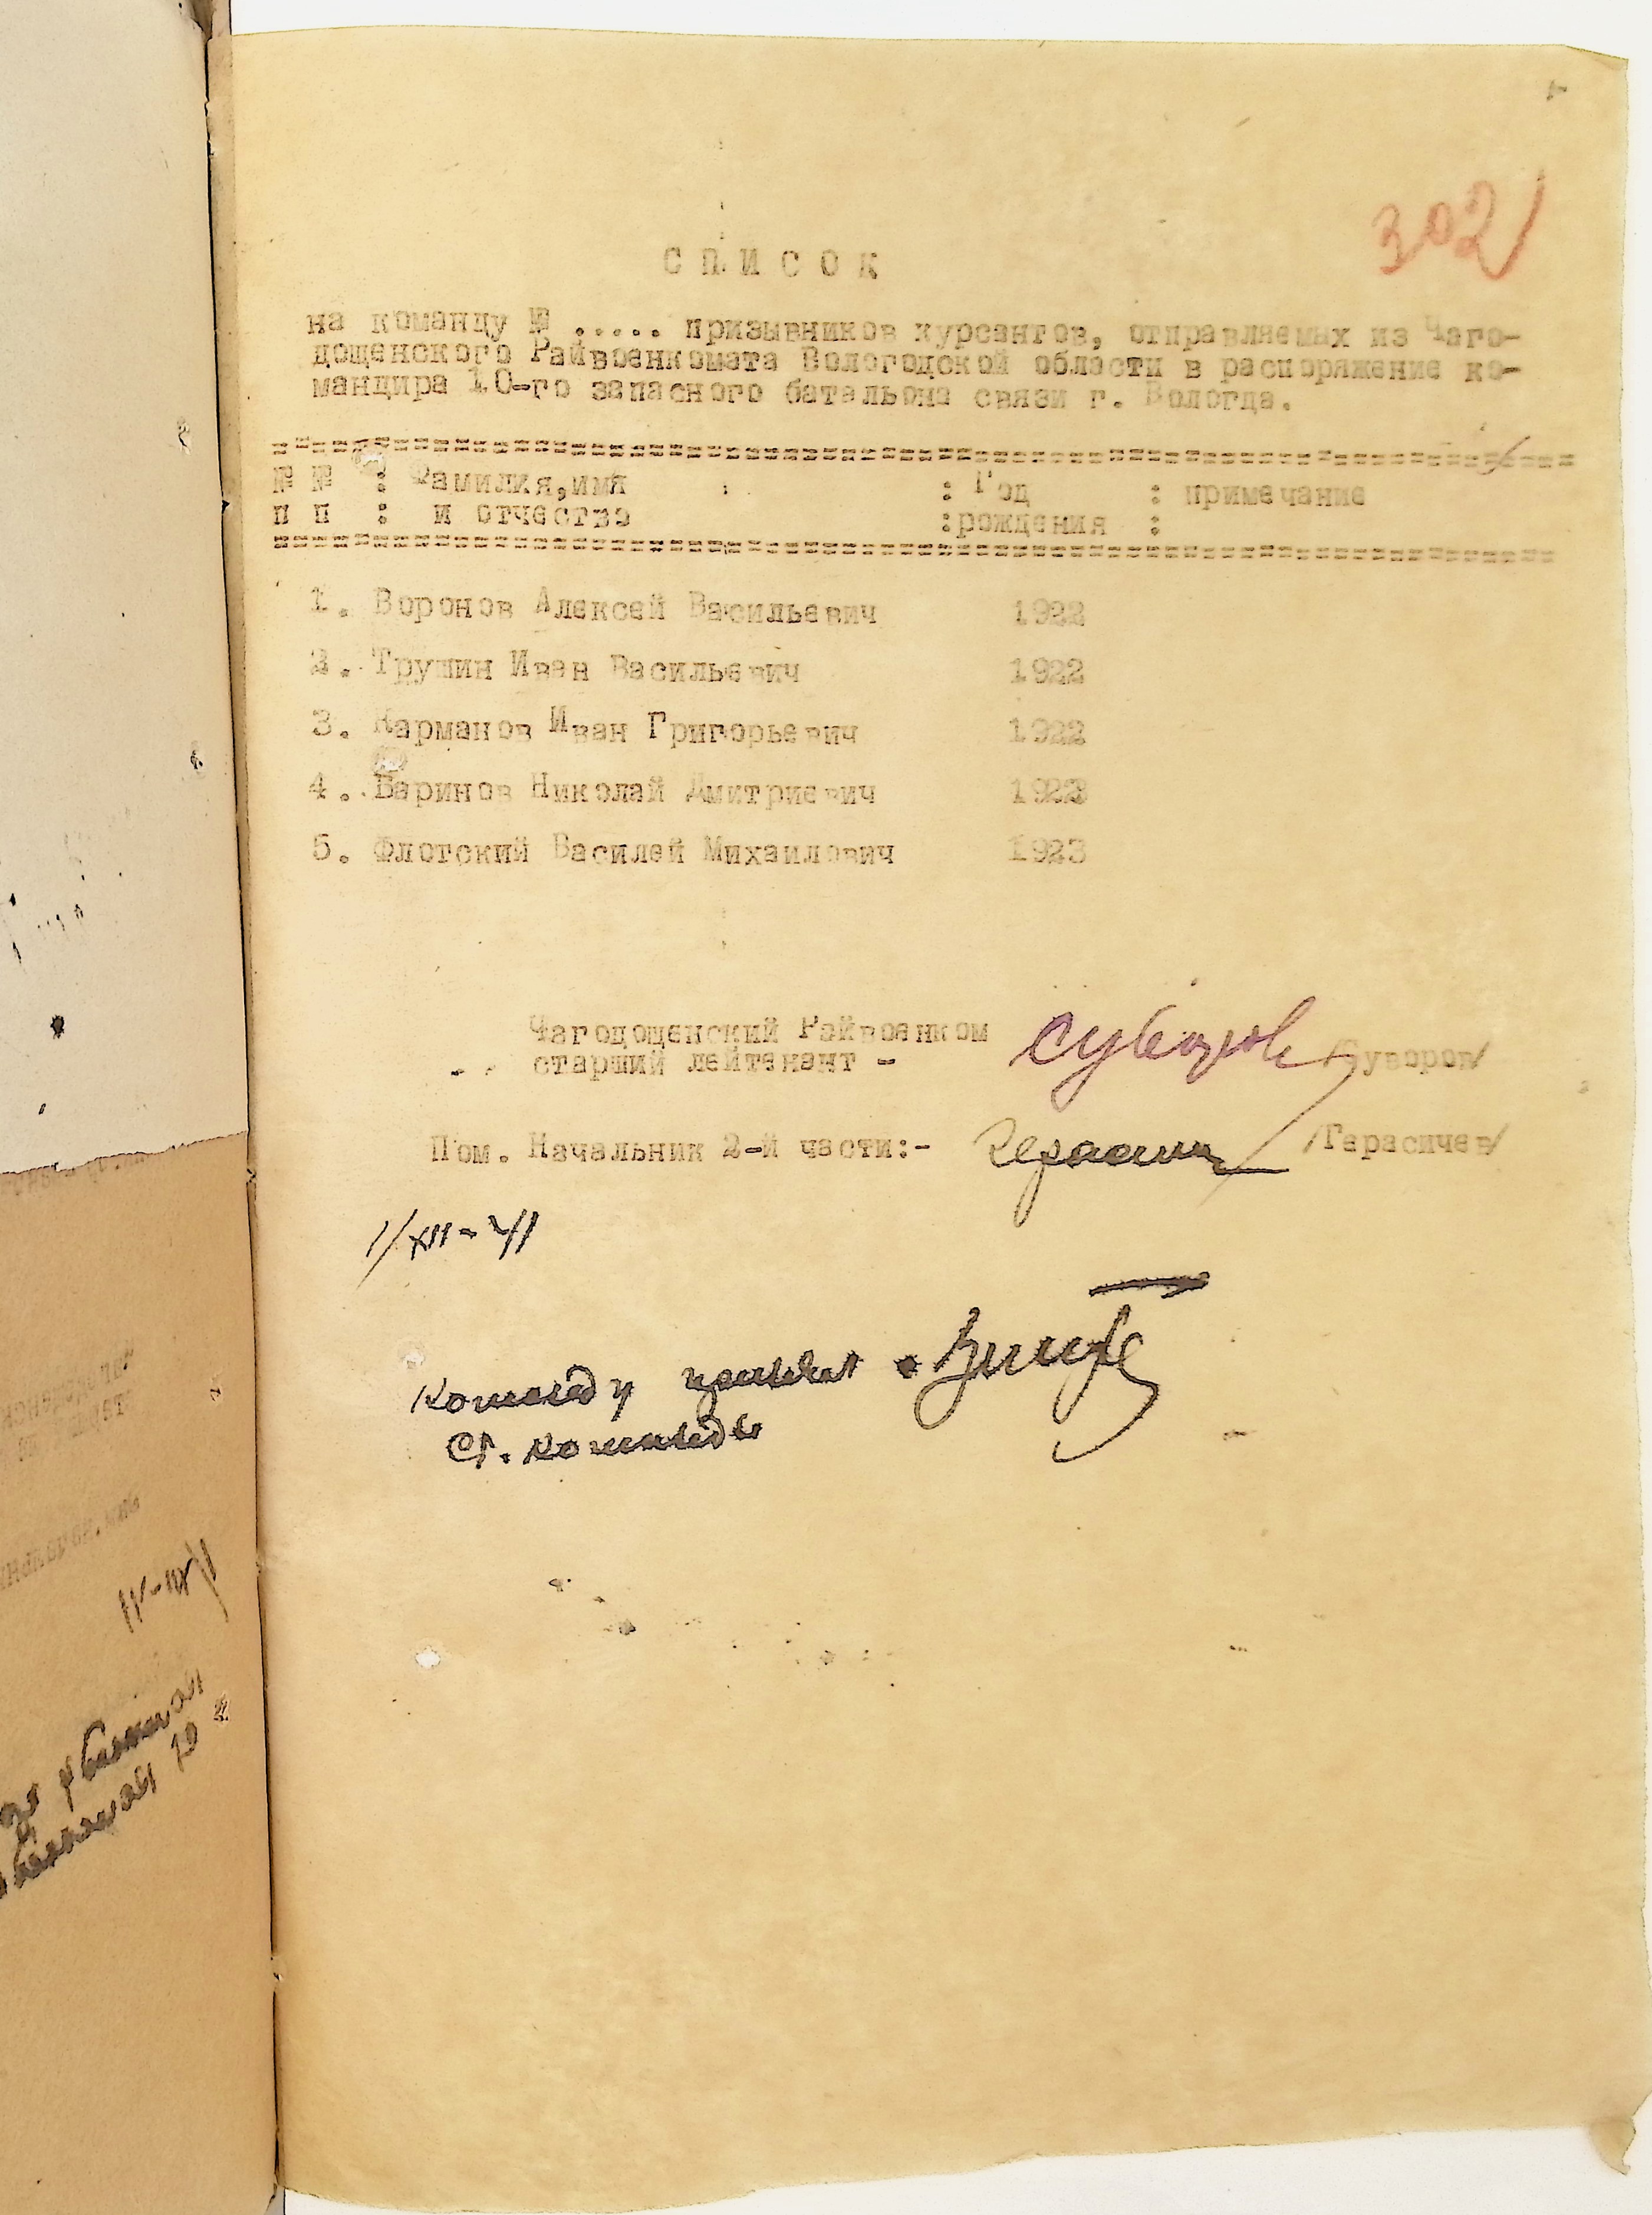 302
С П И С О К
на команду № ..... призывников курсантов, отправляемых из Чаго-
дощенского Райвоенкомата Вологодской области в распоряжение ко-
мандира 10-го запасного батальона связи г. Вологда.
№ № : Фамилия,имя : : Год : примечание
п п : и отчество :рождения :
1. Воронов Алексей Васильевич 1922
2. Трушин Иван Васильевич 1922
3. Карманов Иван Григорьевич 1922
4. Баринов Николай Дмитриевич
5. Флотский Василей Михаилович 1923
Чагодощенский Райвоенком
старший лейтенант - Суворов /Суворов/
Пом. Начальник 2-й части:- /Герасичев/
1/XII-41
Команду принял
Ст. команды